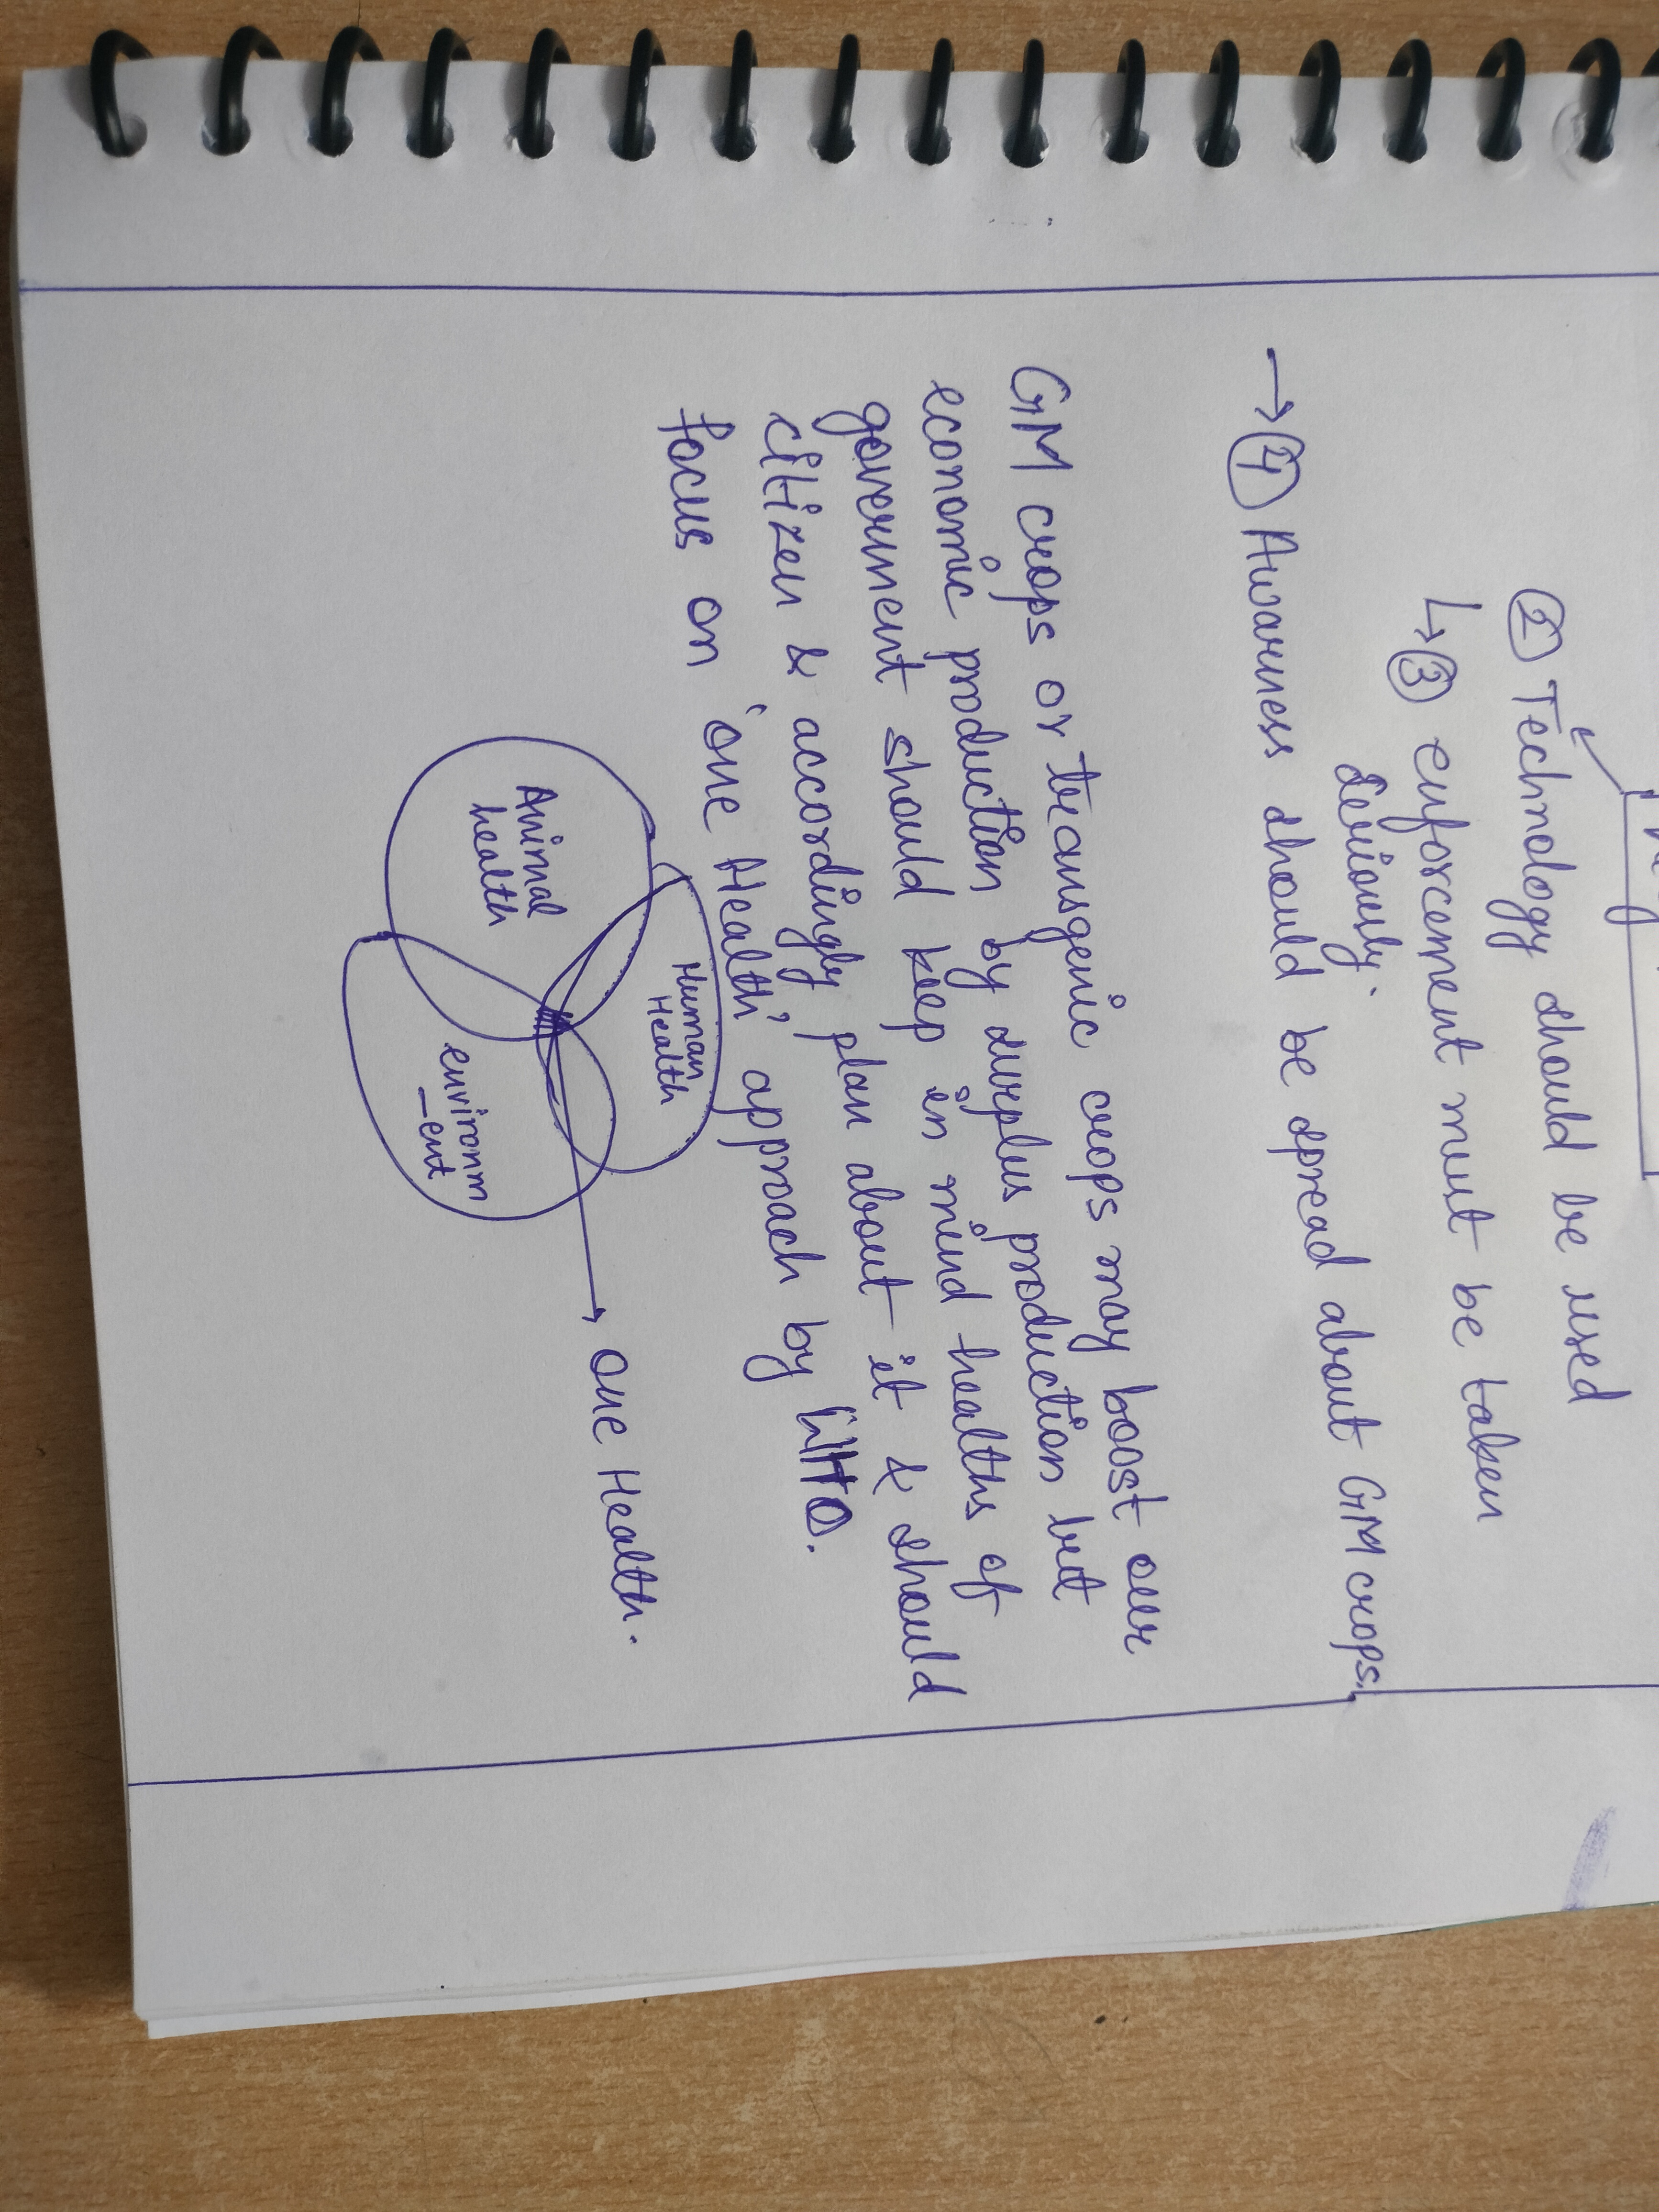 ② Technology should be used
↳ ③ enforcement must be taken
seriously.
→ ④ Awarness should be spread about GM crops.
GM crops or transgenic crops may boost our
economic production by surplus production but
government should keep in mind healths of
citizen & accordingly plan about it & should
focus on 'one Health' approach by WHO.
Human
Health
Animal
health
environm
-ent
→ one Health.